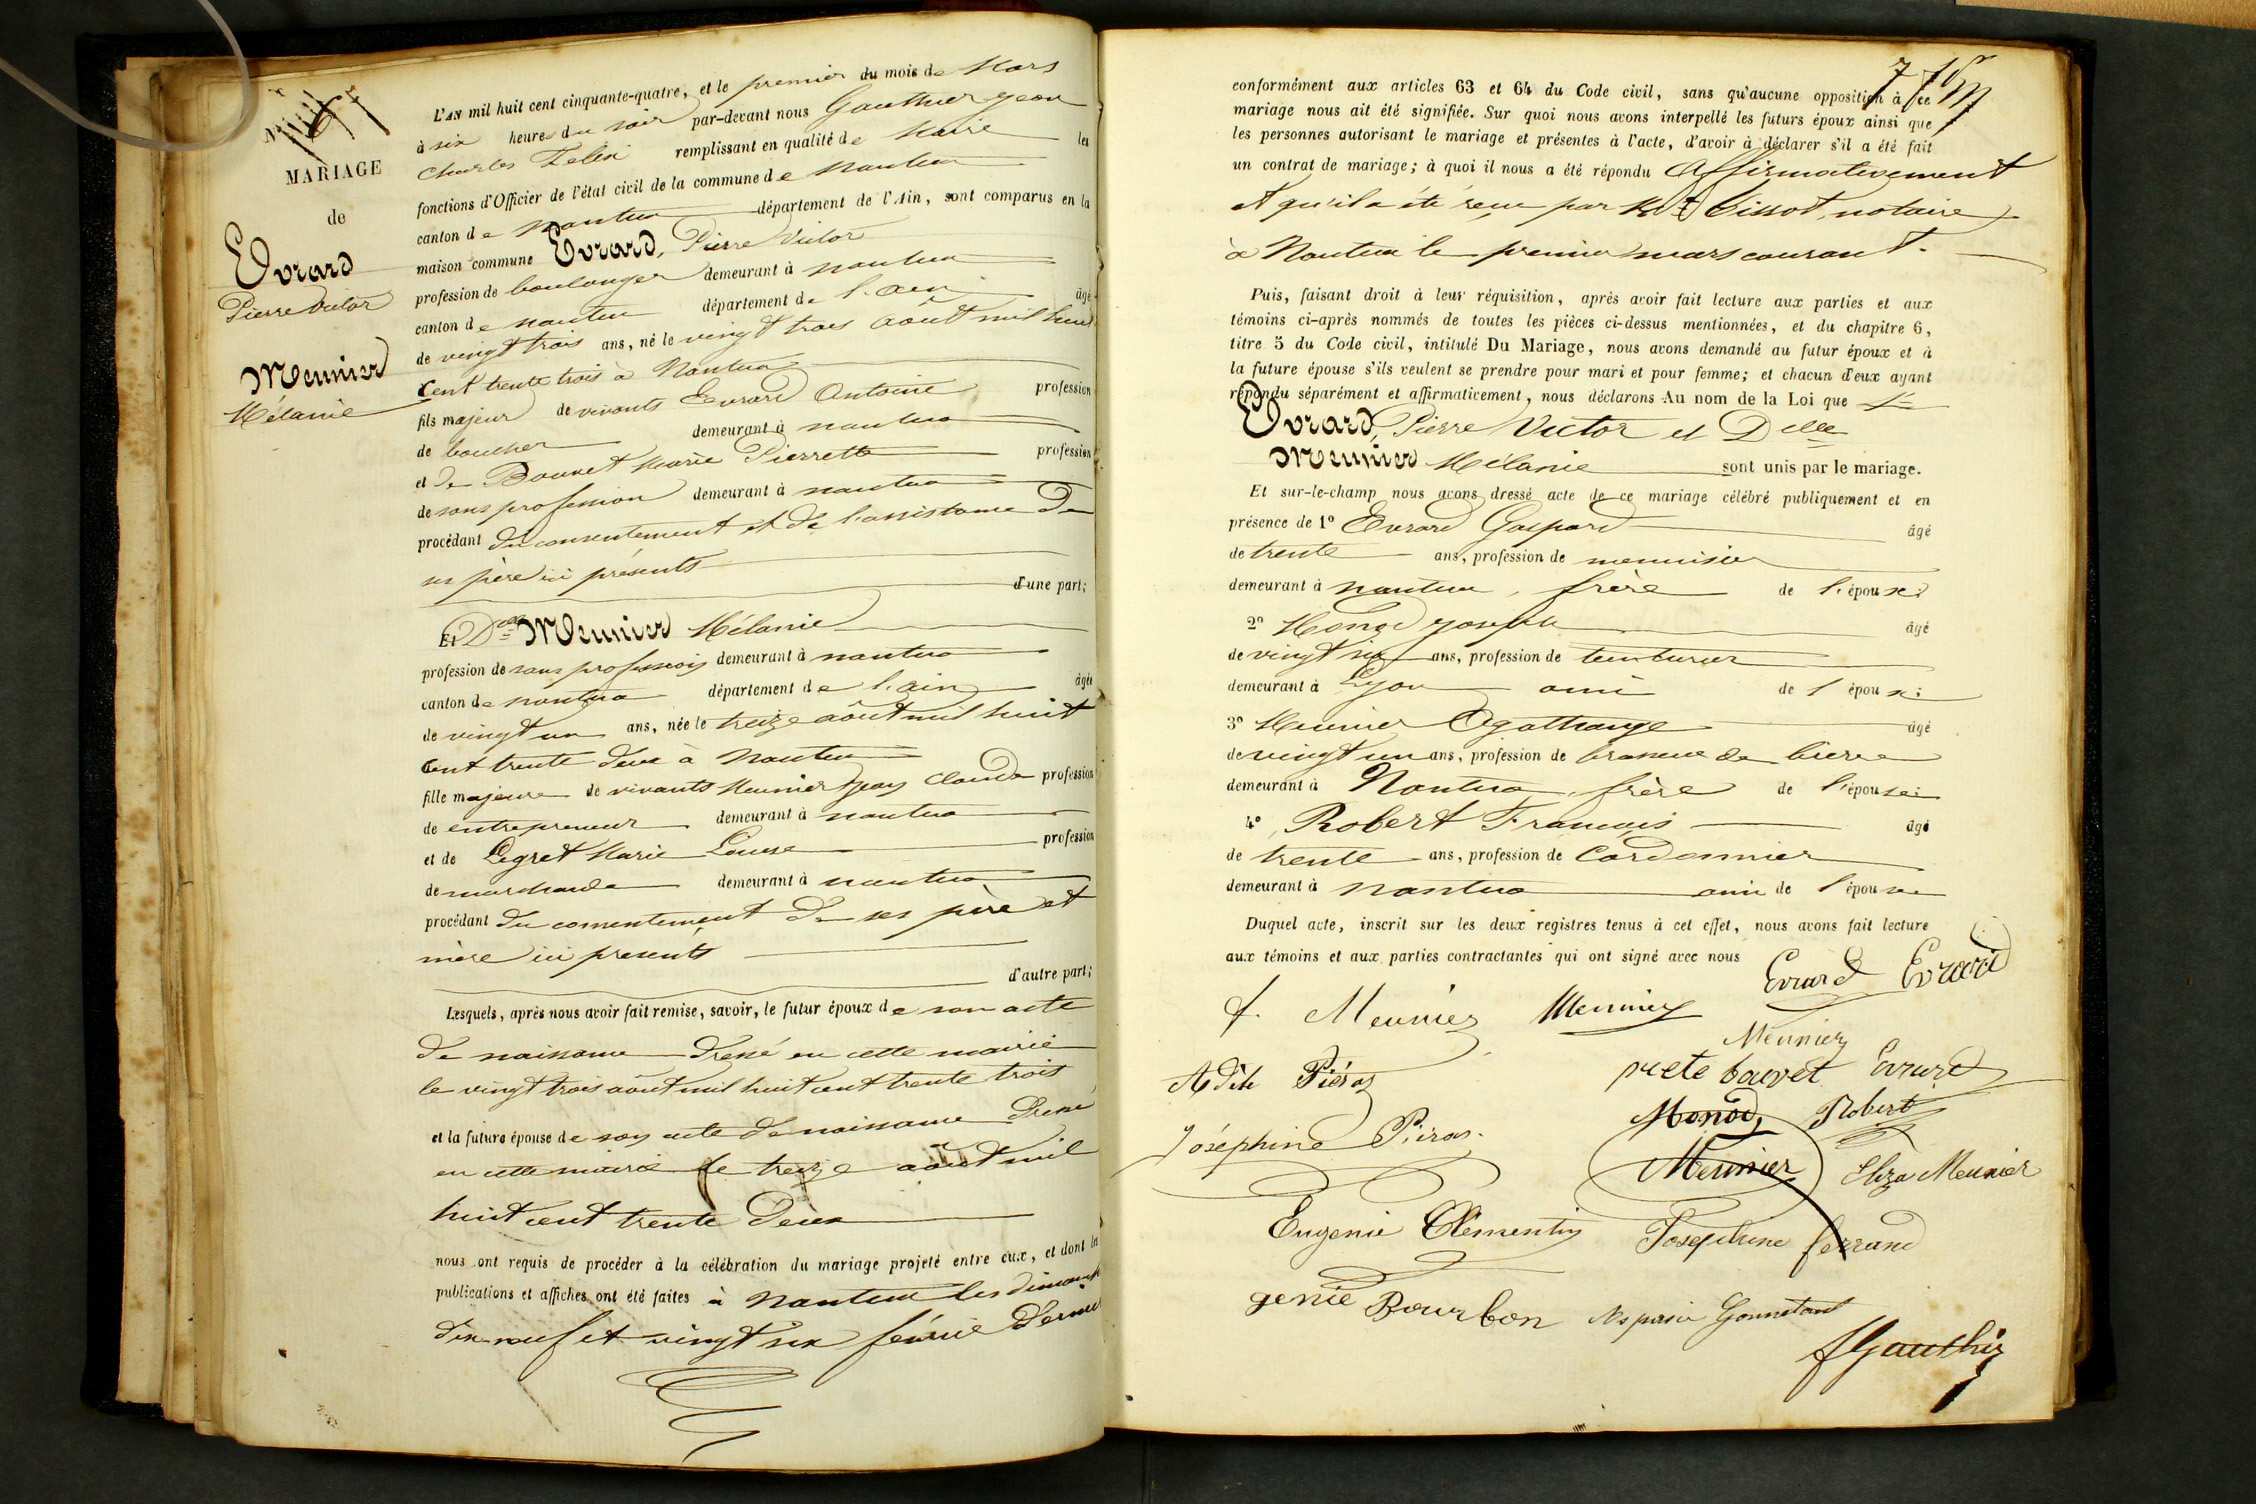 MARIAGE
de
Evrard
Pierre Victor
Meunier
Mélanie
L'AN mil huit cent cinquante-quatre, et le premier du mois de Mars
à six heures du soir par-devant nous Gauthier Jean
Charles Felix remplissant en qualité de Maire les
fonctions d'Officier de l'état civil de la commune de Nantua
canton de Nantua département de l'Ain, sont comparus en la
maison commune Evrard, Pierre Victor
profession de boulanger demeurant à Nantua
canton de Nantua département de l'ain âgé
de vingt trois ans, né le vingt trois août mil huit
Cent trente trois à Nantua
fils majeur de vivants Evrard Antoine profession
de boucher demeurant à nantua
et de Bouvet Marie Pierrette profession
de sans profession demeurant à nantua
procédant du consentement et de l'assistance de
ses père ici présents
d'une part;
Et Delle Meunier Mélanie
profession de sans profession demeurant à nantua
canton de nantua département de l'ain âgée
de vingt un ans, née le treize août mil huit
Cent trente deux à Nantua
fille majeure de vivants Meunier Jean Claude profession
de entrepreneur demeurant à nantua
et de Legret Marie Louise profession
de marchande demeurant à nantua
procédant du consentement de ses père et
mère ici présents
d'autre part;
Lesquels, après nous avoir fait remise, savoir, le futur époux de son acte
de naissance dressé en cette mairie
le vingt trois août mil huit cent trente trois
et la future épouse de son acte de naissance dressé
en cette mairie le treize août mil
huit cent trente deux
nous ont requis de procéder à la célébration du mariage projeté entre eux, et dont les
publications et affiches ont été faites à Nantua les dimanches
dix neuf et vingt six février dernier
conformément aux articles 63 et 64 du Code civil, sans qu'aucune opposition à ce
mariage nous ait été signifiée. Sur quoi nous avons interpellé les futurs époux ainsi que
les personnes autorisant le mariage et présentes à l'acte, d'avoir à déclarer s'il a été fait
un contrat de mariage; à quoi il nous a été répondu Affirmativement
et qu'il a été reçu par Me Bissot, notaire
à Nantua le premier mars courant.
Puis, faisant droit à leur réquisition, après avoir fait lecture aux parties et aux
témoins ci-après nommés de toutes les pièces ci-dessus mentionnées, et du chapitre 6,
titre 5 du Code civil, intitulé Du Mariage, nous avons demandé au futur époux et à
la future épouse s'ils veulent se prendre pour mari et pour femme; et chacun d'eux ayant
répondu séparément et affirmativement, nous déclarons Au nom de la Loi que
Evrard, Pierre Victor et Delle
Meunier Mélanie sont unis par le mariage.
Et sur-le-champ nous avons dressé acte de ce mariage célébré publiquement et en
présence de 1º Evrard Gaspard âgé
de trente ans, profession de menuisier
demeurant à nantua, frère de l'époux;
2º Joseph âgé
de vingt six ans, profession de teinturier
demeurant à Lyon ami de l époux;
3º Meunier Agathange âgé
de vingt un ans, profession de brasseur de bierre
demeurant à Nantua, frère de l'épouse;
4º Robert François âgé
de trente ans, profession de Cordonnier
demeurant à nantua ami de l'épouse
Duquel acte, inscrit sur les deux registres tenus à cet effet, nous avons fait lecture
aux témoins et aux parties contractantes qui ont signé avec nous
Evrard Evrard
f. Meunier Meunier
Meunier
Adèle Piéraz
prete bouvet Evrard
Monod Robert
Joséphine Piéras.
Meunier Eliza Meunier
Eugenie Clementin Josephine ferrand
genie Bourbon Aspasie Gonnetant
f Gauthier